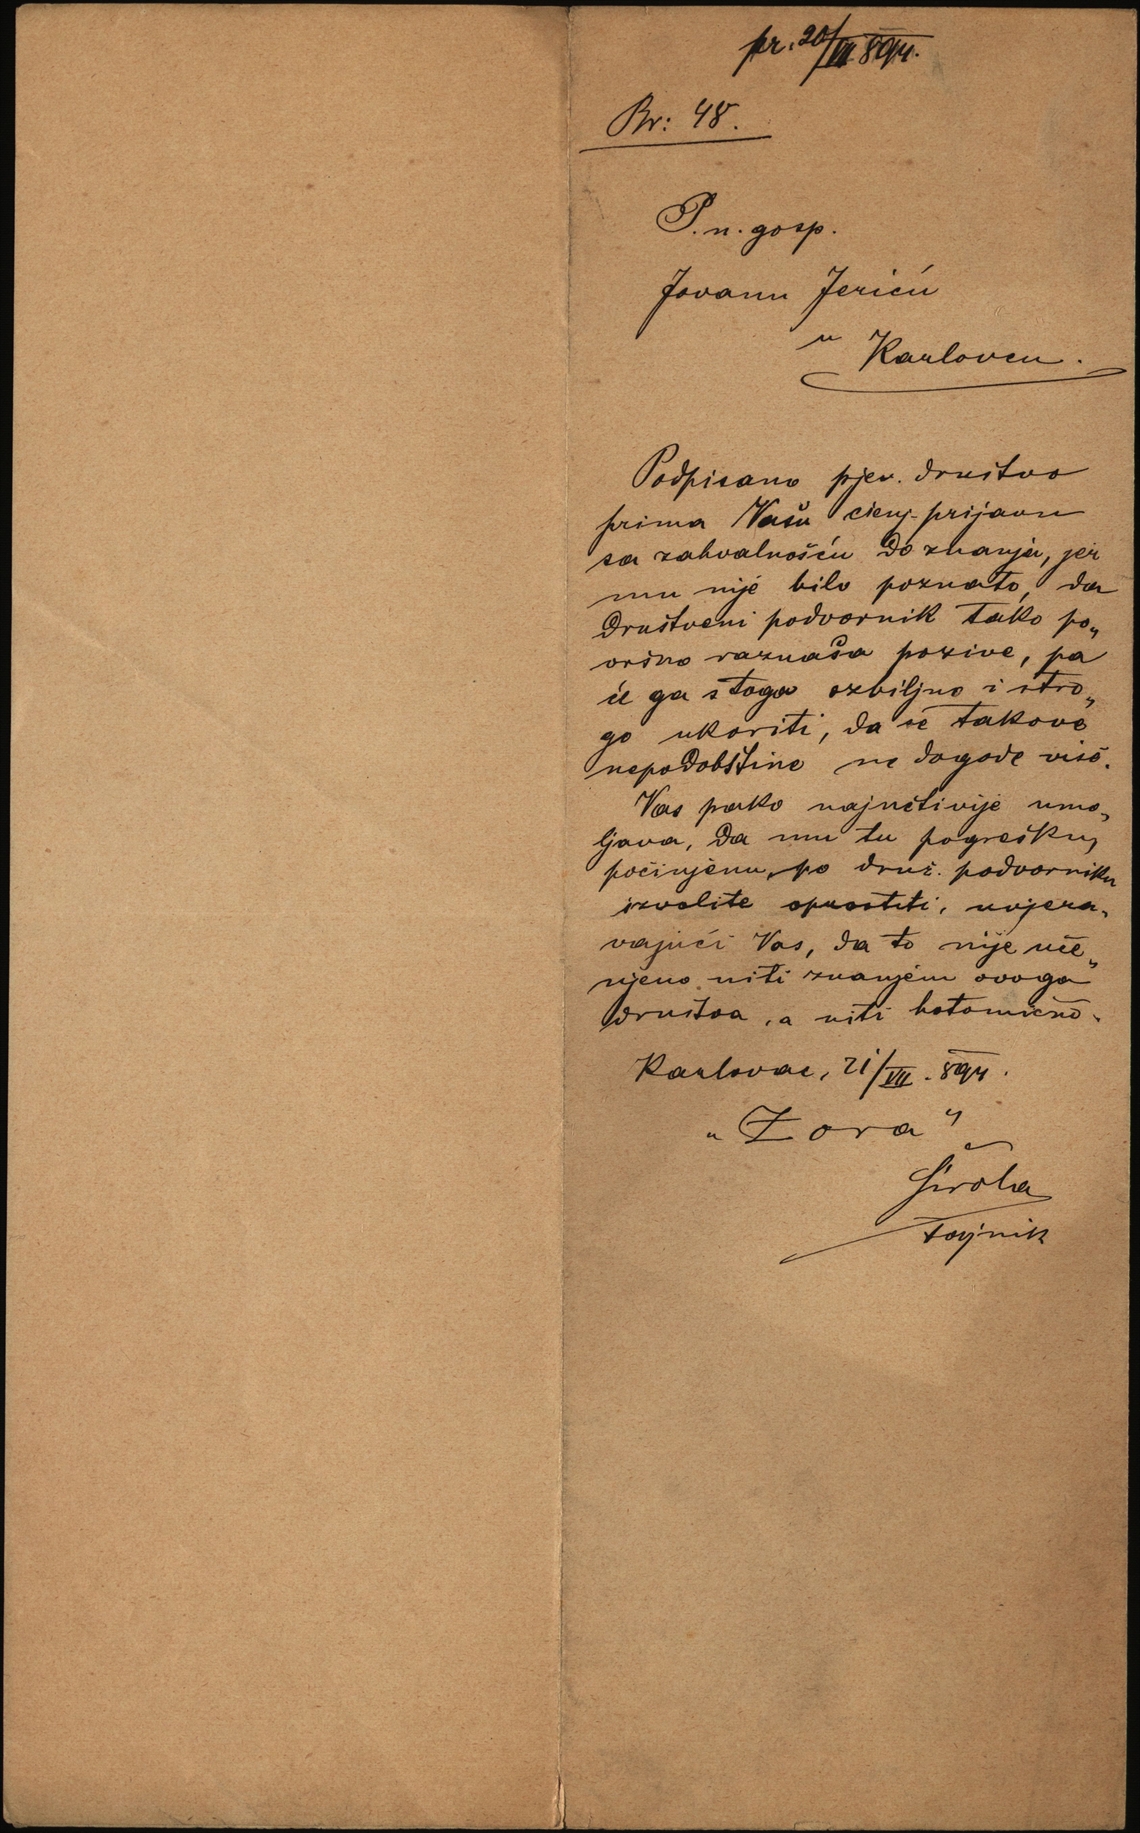 pr. 20/VII 894.
Br: 48.
P. n. gosp.
Jovanu Jeriću
u Karlovcu.
Podpisano pjev. društvo
prima Vašu cienj. prijavu
sa zahvalnošću do znanja, jer
mu nije bilo poznato, da
društveni podvornik tako po„
vršno raznaša pozive, pa
će ga stoga ozbiljno i stro„
go ukoriti, da se takove
nepodobštine ne dogode više.
Vas pako najučtivije umo„
ljava, da mu tu pogrešku,
počinjenu po druš. podvorniku
izvolite oprostiti, uvjera„
vajući Vas, da to nije uče„
njeno niti znanjem ovoga
društva, a niti hotomično.
Karlovac, 21/VII. 894.
„Zora"
Širola
tajnik